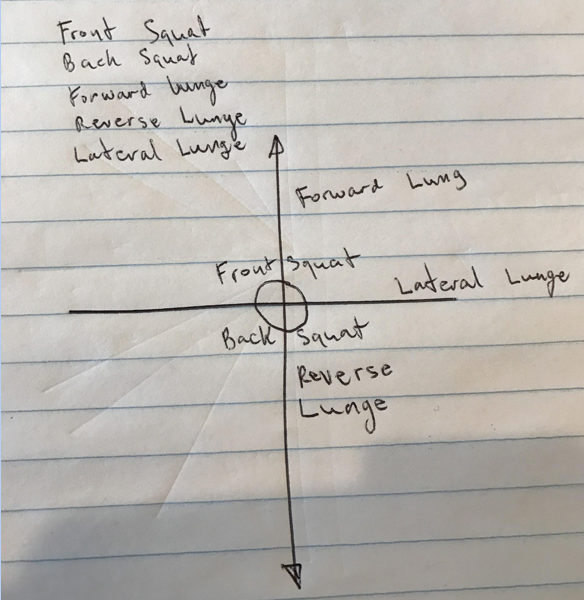 Front Squat
Back Squat
Forward Lunge
Reverse Lunge
Lateral Lunge
Forward Lung
Front Squat
Lateral Lunge
Back Squat
Reverse
Lunge